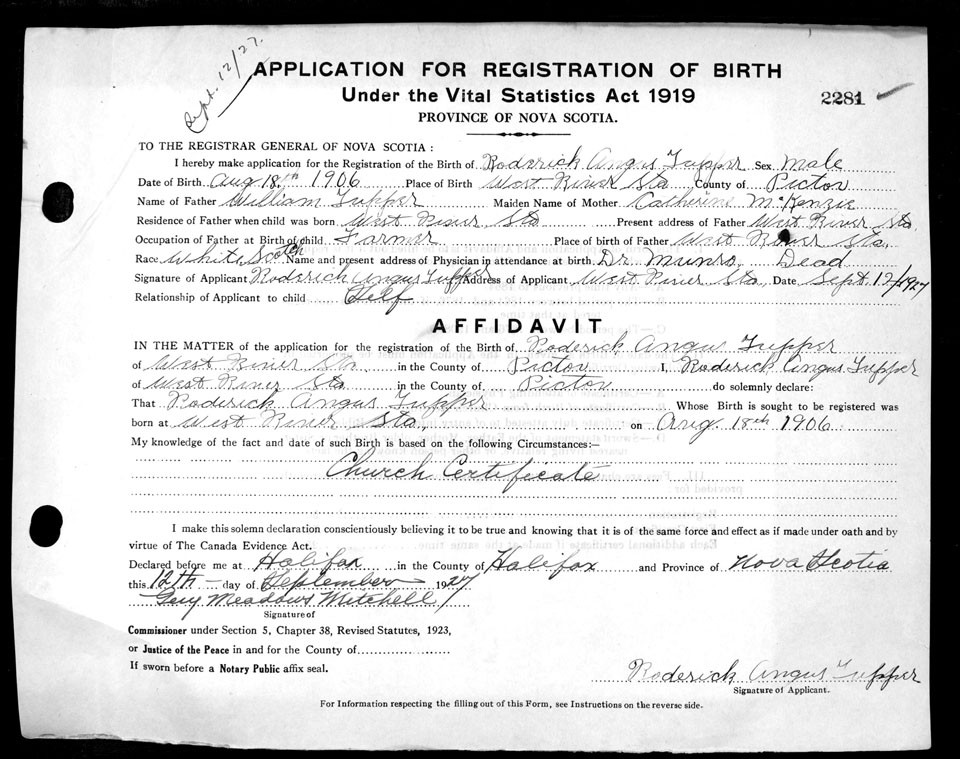 Sept. 12/27.
APPLICATION FOR REGISTRATION OF BIRTH
Under the Vital Statistics Act 1919
2281
PROVINCE OF NOVA SCOTIA.
TO THE REGISTRAR GENERAL OF NOVA SCOTIA :
I hereby make application for the Registration of the Birth of Roderick Angus Tupper Sex Male
Date of Birth Aug 18th 1906 Place of Birth West River Sta County of Pictou
Name of Father William Tupper Maiden Name of Mother Catherine McKenzie
Residence of Father when child was born West River Sta Present address of Father West River Sta
Occupation of Father at Birth of child Farmer Place of birth of Father West River Sta.
Race White Scotch Name and present address of Physician in attendance at birth, Dr. Munro Dead
Signature of Applicant Roderick Angus Tupper Address of Applicant West River Sta, Date Sept. 12/1927
Relationship of Applicant to child Self
AFFIDAVIT
IN THE MATTER of the application for the registration of the Birth of Roderick Angus Tupper
of West River Sta in the County of Pictou I, Roderick Angus Tupper
of West River Sta in the County of Pictou do solemnly declare:
That Roderick Angus Tupper Whose Birth is sought to be registered was
born at West River Sta on Aug. 18th 1906
My knowledge of the fact and date of such Birth is based on the following Circumstances:
Church Certificate
I make this solemn declaration conscientiously believing it to be true and knowing that it is of the same force and effect as if made under oath and by
virtue of The Canada Evidence Act.
Declared before me at Halifax in the County of Halifax and Province of Nova Scotia
this 12th day of September 1927
Meadows Mitchell
Signature of
Commissioner under Section 5, Chapter 38, Revised Statutes, 1923,
or Justice of the Peace in and for the County of
If sworn before a Notary Public affix seal.
Roderick Angus Tupper
Signature of Applicant.
For Information respecting the filling out of this Form, see Instructions on the reverse side.